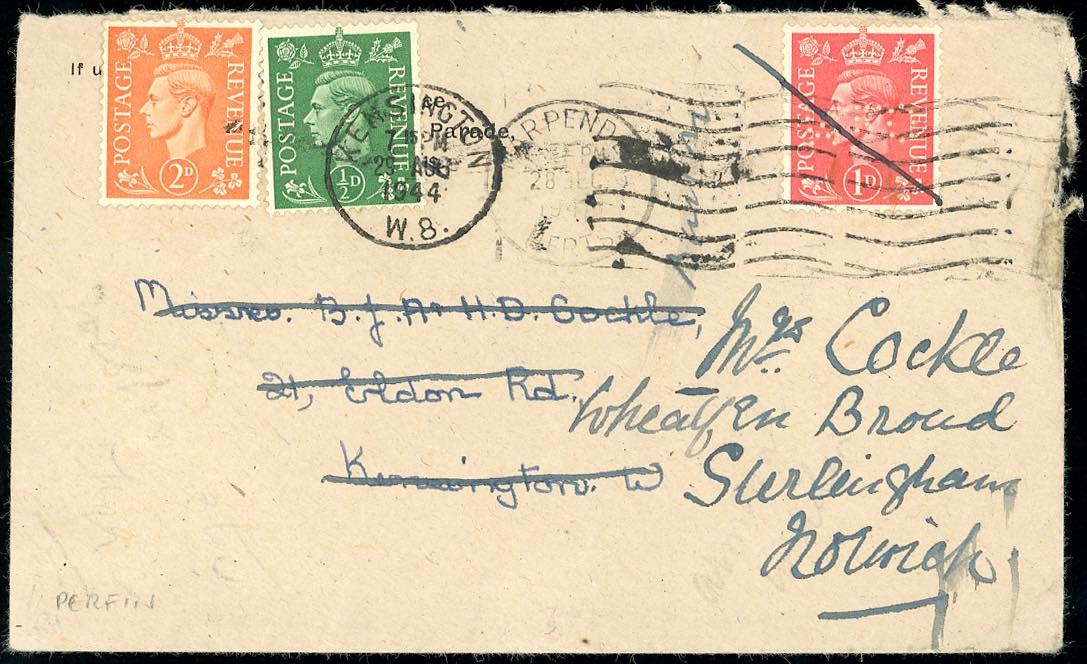 If u
POSTAGE REVENUE 2D
POSTAGE REVENUE ½D
se
Parade,
KENSINGTON
7.15 PM
29 AUG
1944
W.8.
ARPEND
28
POSTAGE REVENUE 1D
Messrs. B.J. A H.D. Cockle,
21, Eldon Rd.,
Kensington. W
Mrs. Cockle
Wheatfen Broad
Surlingham
Norwich
PERFIN